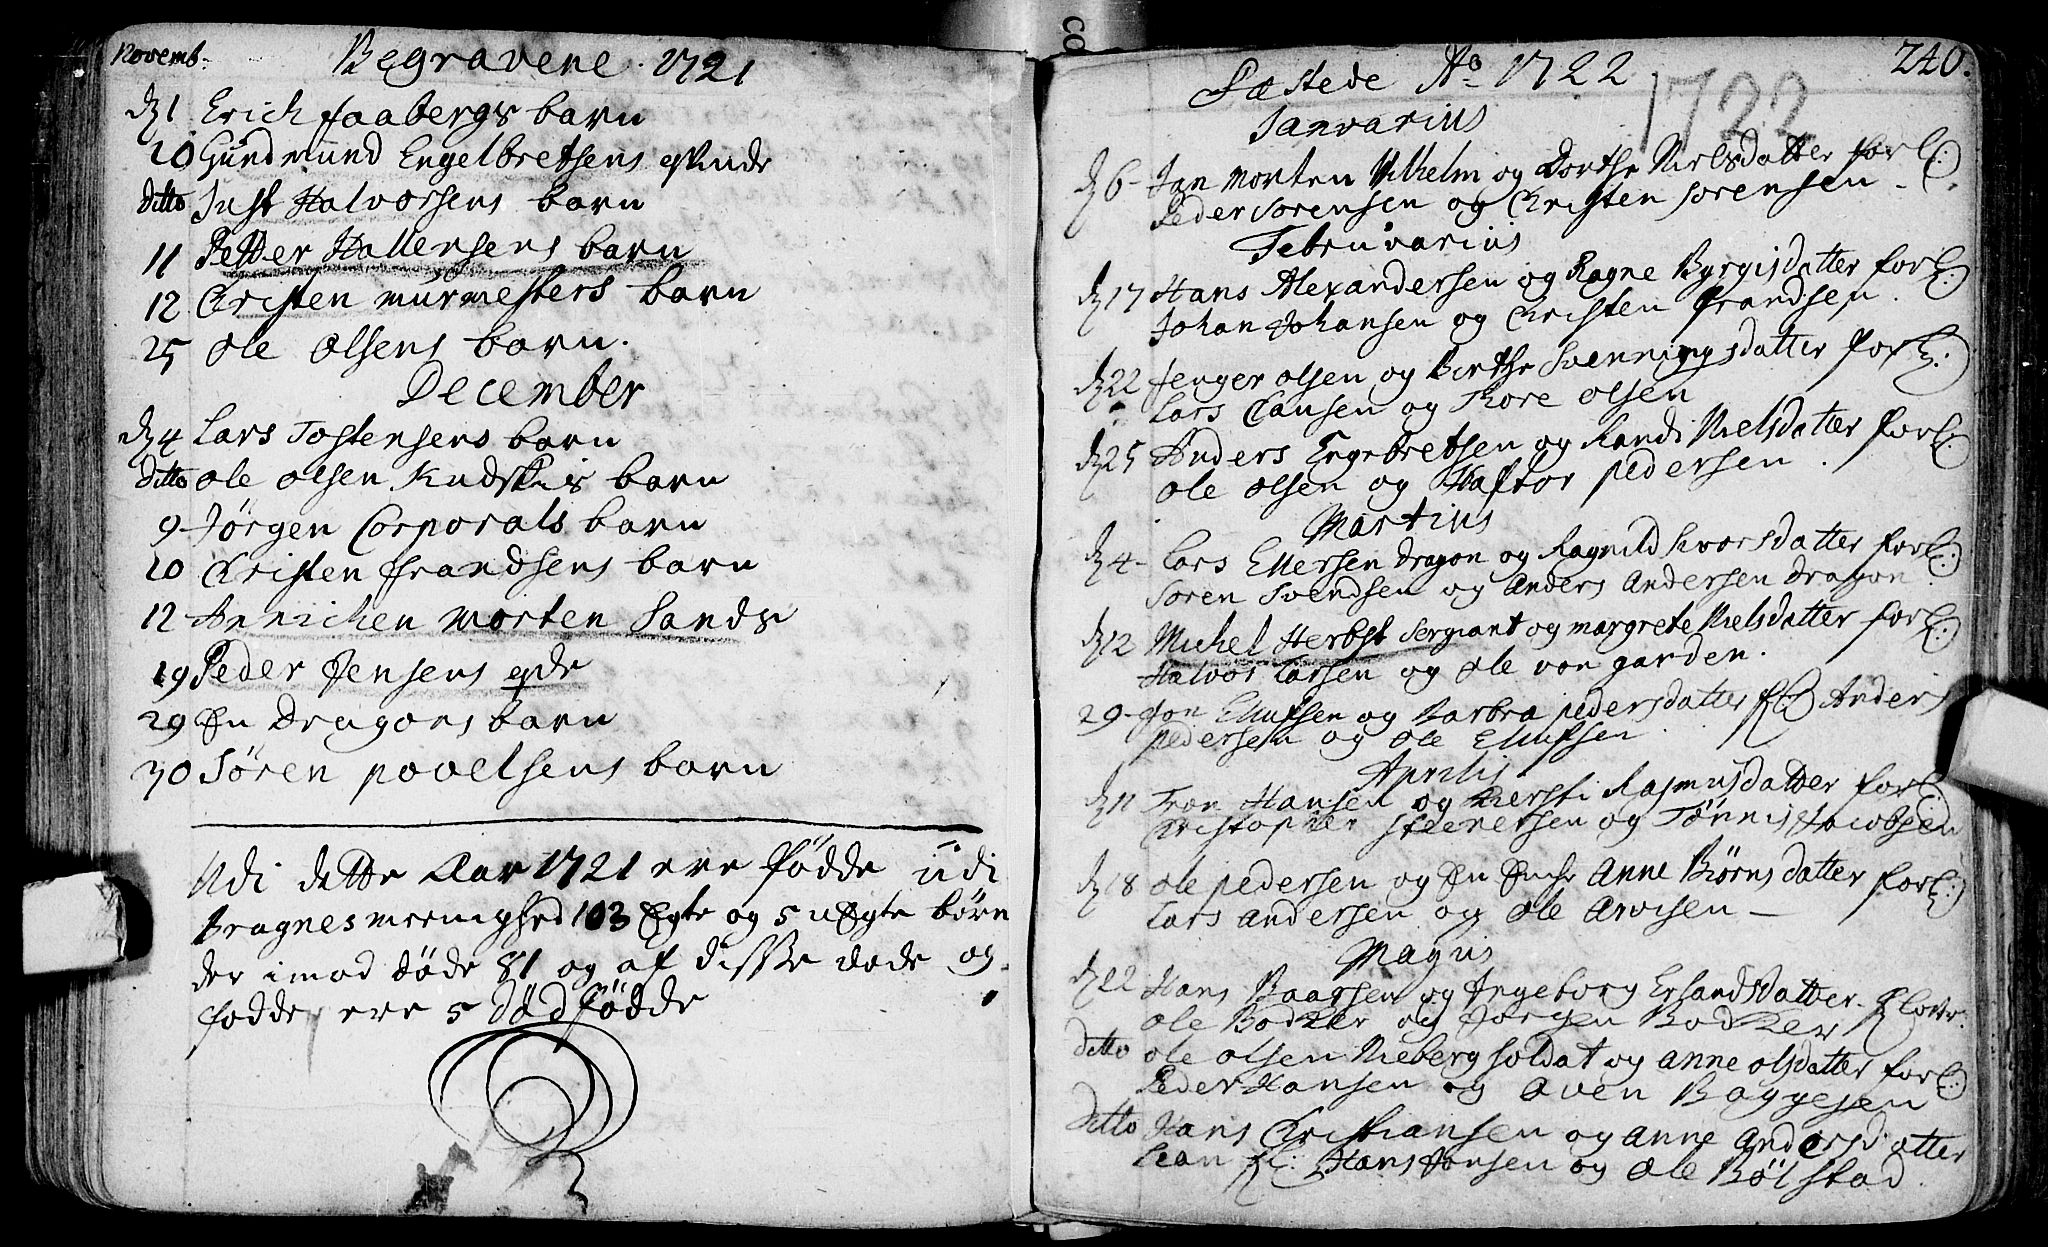 Novemb:
Begravene 1721
dj 1 Erich Faabergs barn
10 Gundmund Engelbretsens qvinde
ditto Just Halvorsens barn
11 Petter Hallensens barn
12 Christen murmesters barn
25 Ole Olsens barn.
December
dj 4 Lars Tostensens barn
ditto Ole Olsen Kudskis barn
9 Jørgen Corporals barn
10 Christen Frandsens barn
12 Annichen Morten Sands
19 Peder Jensens
29 En Dragons barn
30 Søren povelsens barn
Udi dette Aar 1721 ere fødde udi
Bragnes meenighed 103 Egte og 5 uEgte børn
der imod døde 81 og af disse døde og
fødde ere 5 dødfødde
240.
Fæstede Ao 1722
1722
Janvarius
dj 6 Jan Morten Vilhelm og Dorthe Nielsdatter forl:
Peder Sorensen og Christen Sorensen
Februarius
dj 17 Hans Alexandersen og Ragne Byrgisdatter forl:
Johan Johansen og Christen Frandsen.
dj 22 Jenger Olsen og Birthe Svenningsdatter forl:
Lars Clausen og Thore Olsen
dj 25 Anders Engebretsen og Randi Nielsdatter forl:
Ole Olsen og Haftor Pedersen.
Martius
dj 4 Lars Ellersen Dragon og Ragnild Iversdatter forl:
Soren Svendsen og Anders Andersen Dragon
dj 12 Michel Herbst Sergiant og margrete Nielsdatter forl:
Halvor Larsen og Ole von garden.
29 Jon Ellufsen og Barbra pedersdatter fl Anders
Pedersen og Ole Ellufsen.
Aprilis
dj 11 Tron Hansen og Kiersti Rasmusdatter forl:
Christopher Steenersen og Tønnis Jacobsen
dj 18 Ole pedersen og En Enche Anne Biørnsdatter forl:
Lars Andersen og Ole Arvesen
Majus
dj 22 Hans Baarsen og Ingeborg Erlandsdatter.
Ole Bodker og Jørgen Bodker
ditto Ole Olsen Nieberg soldat og Anne olsdatter forl:
Peder Hansen og Aven Baggesen
ditto Hans Christiansen og Anne Andersdatter
fl: Hans Jonsen og Ole Bølstad.